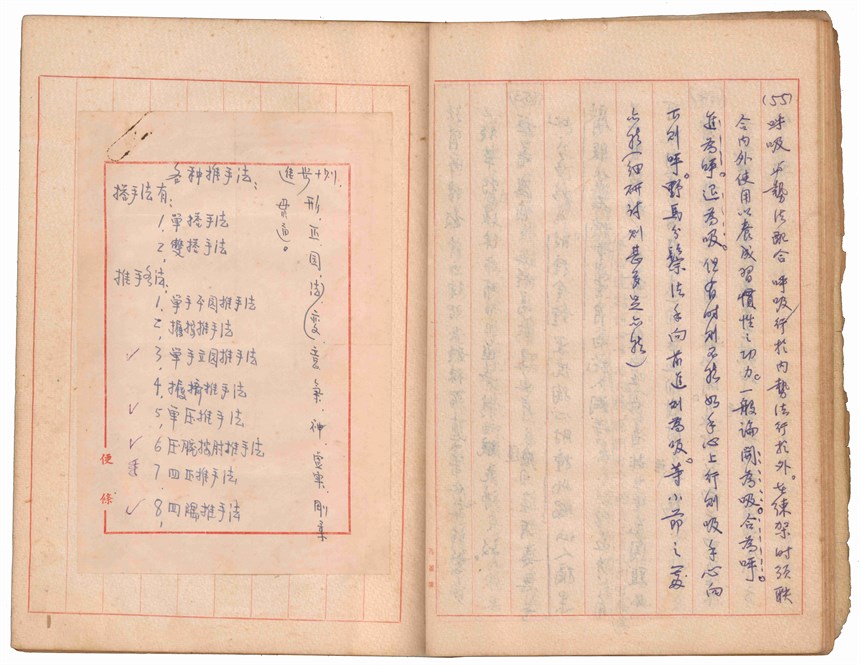 (55) 呼吸与势法配合 呼吸行於内势法行於外。在練架时须联
合内外使用以養成習慣性之功力。一般論開為吸合為呼。
進為呼。退為吸。但有时则不然如手心上行则吸手心向
下则呼。野馬分鬃法手向前進则為吸。等小節之處
亦然(细研讨则甚多是亦然)
進步十则.
形.正.圆.法(变.意.氣.神.虚实.剛柔
貫通。
各种推手法:
搭手法有:
1, 单搭手法
2, 雙搭手法
推手法:
1, 单手平圆推手法
2, 攦按推手法
3, 单手立圆推手法
4, 攦擠推手法
5, 单压推手法
6, 压腕按肘推手法
7, 四正推手法
8, 四隅推手法
便條